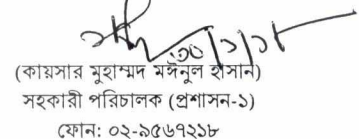 ৩০/১/১৮
(কায়সার মুহাম্মদ মঈনুল হাসান)
সহকারী পরিচালক (প্রশাসন-১)
ফোন: ০২-৯৫৬৭২১৮